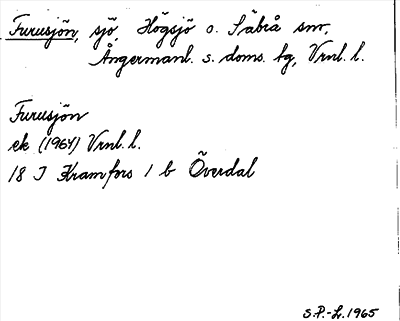 Furusjön, sjö, Högsjö o. Säbrå snr,
Ångermanl. s. doms. tg, Vrnl. l.
Furusjön
ek (1964) Vrnl. l.
18 I Kramfors 1 b Överdal
S.P.-L. 1965